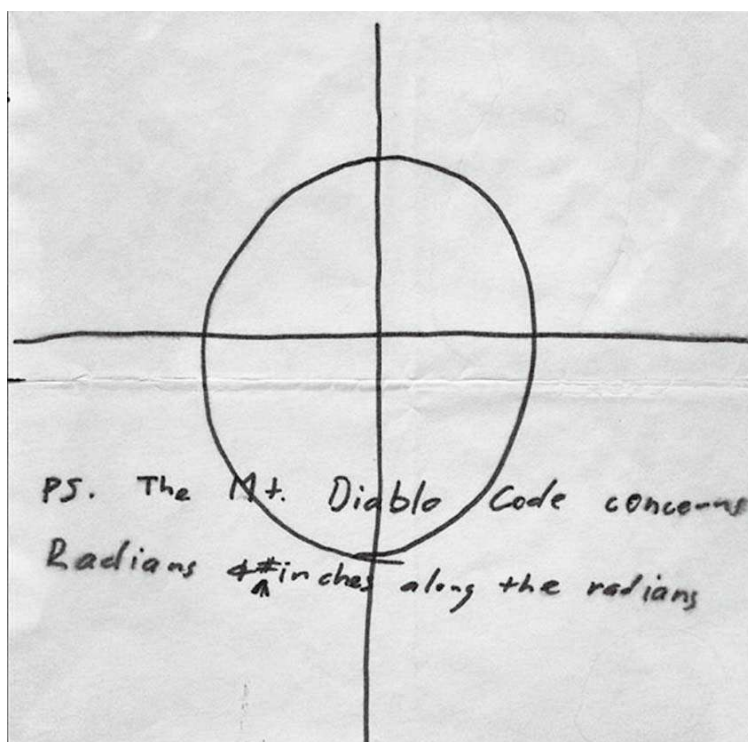 PS. The Mt. Diablo Code concerns
Radians & # inches along the radians